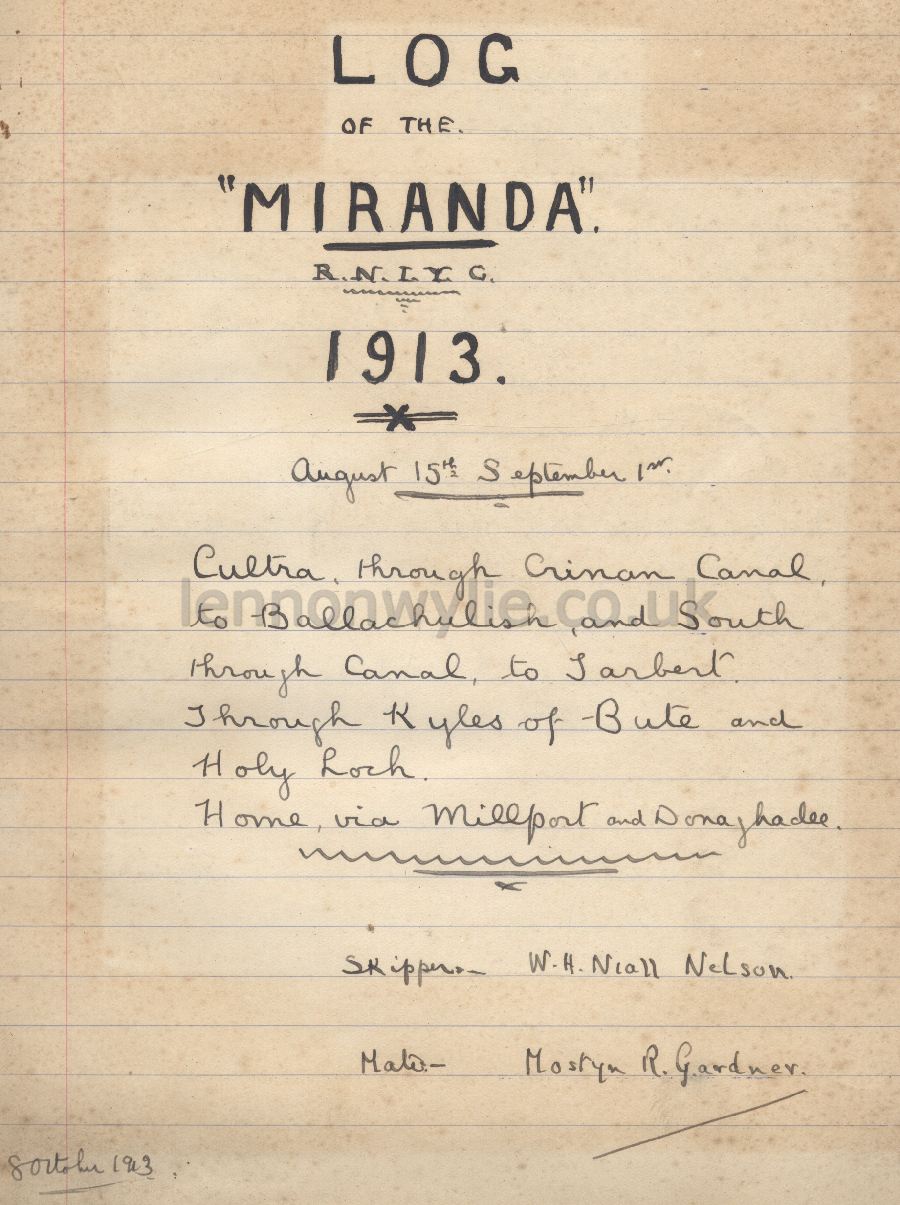 LOG
OF THE.
"MIRANDA".
R.N.I.Y C.
1913.
August 15th September 1st.
Cultra, through Crinan Canal,
lennonwylie.co.uk
to Ballachulish, and South
through Canal, to Tarbert.
Through Kyles of Bute and
Holy Loch.
Home, via Millport and Donaghadee.
Skipper:- W.H. Niall Nelson.
Mate:- Mostyn R. Gardner.
8 October 1913.